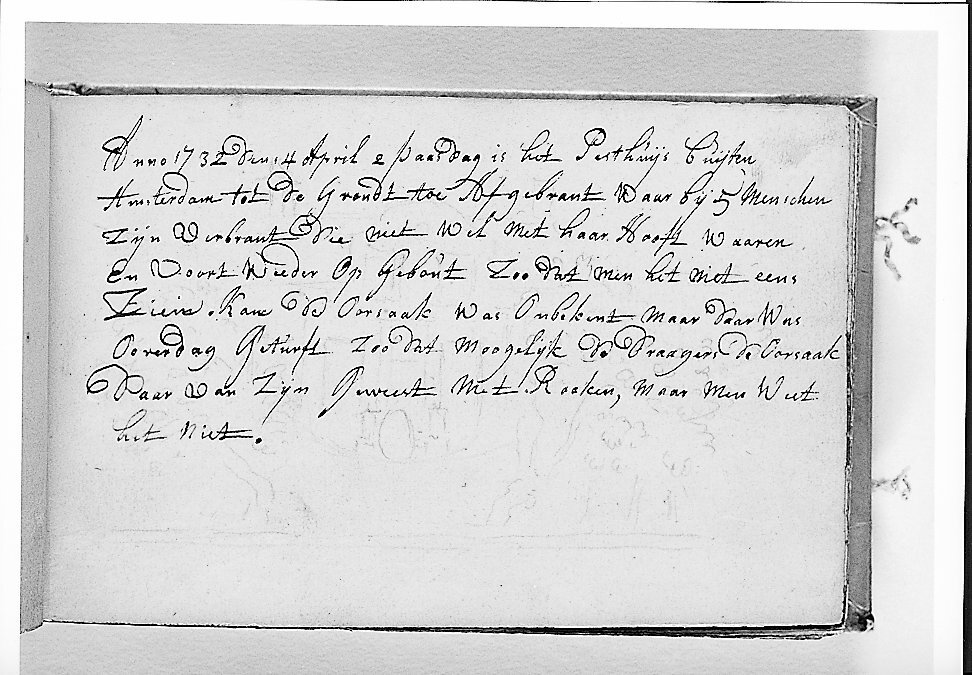 Anno 1732 den 14 April 2 paasdag is het Pesthuijs buijten
Amsterdam tot de Grondt toe Afgebrant waar bij 5 Menschen
Zijn Verbrant die niet Wel Met haar Hooft Waaren
En Voort Weeder Op Gebout Zoo dat men het niet eens
Zien Kan de Oorsaak Was Onbekent maar daar Was
Overdag Geturft Zoo dat moogelijk de Draagers de Oorsaak
Daar Van Zijn Geweest Met Rooken, maar Men Weet
het Niet.